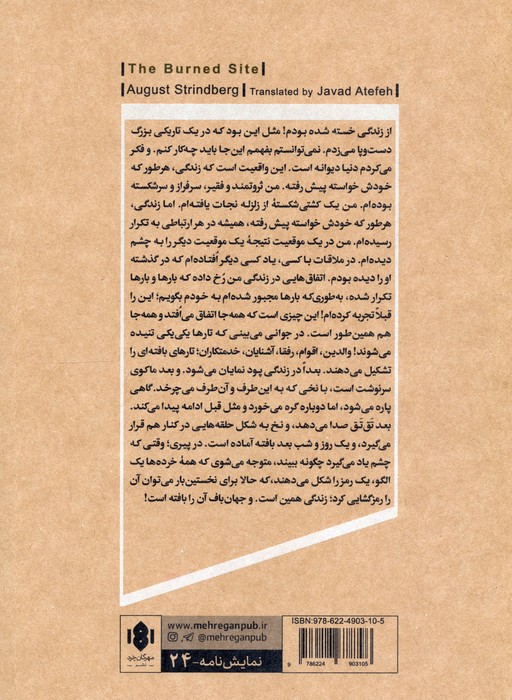 The Burned Site
August Strindberg | Translated by Javad Atefeh
از زندگی خسته شده بودم! مثل این بود که در یک تاریکی بزرگ
دست‌وپا می‌زدم. نمی‌توانستم بفهمم این‌جا باید چه‌کار کنم. و فکر
می‌کردم دنیا دیوانه است. این واقعیت است که زندگی، هرطور که
خودش خواسته پیش رفته. من ثروتمند و فقیر، سرفراز و سرشکسته
بوده‌ام. من یک کشتی‌شکستهٔ از زلزله نجات یافته‌ام. اما زندگی،
هرطور که خودش خواسته پیش رفته، همیشه در هر ارتباطی به تکرار
رسیده‌ام. من در یک موقعیت نتیجهٔ یک موقعیت دیگر را به چشم
دیده‌ام. در ملاقات با کسی، یاد کسی دیگر اُفتاده‌ام که در گذشته
او را دیده بودم. اتفاق‌هایی در زندگی من رُخ داده که بارها و بارها
تکرار شده، به‌طوری‌که بارها مجبور شده‌ام به خودم بگویم؛ این را
قبلاً تجربه کرده‌ام! این چیزی است که همه‌جا اتفاق می‌اُفتد و همه‌جا
هم همین‌طور است. در جوانی می‌بینی که تارها یکی‌یکی تنیده
می‌شوند! والدین، اقوام، رفقا، آشنایان، خدمتکاران؛ تارهای بافته‌ای را
تشکیل می‌دهند. بعداً در زندگی پود نمایان می‌شود. و بعد ماکوی
سرنوشت است، با نخی که به این‌طرف و آن‌طرف می‌چرخد. گاهی
پاره می‌شود، اما دوباره گره می‌خورد و مثل قبل ادامه پیدا می‌کند.
بعد تَق‌تَق صدا می‌دهد، و نخ به شکل حلقه‌هایی در کنار هم قرار
می‌گیرد، و یک روز و شب بعد بافته آماده است. در پیری؛ وقتی که
چشم یاد می‌گیرد چگونه ببیند، متوجه می‌شوی که همهٔ خرده‌ها یک
الگو، یک رمز را شکل می‌دهند، که حالا برای نخستین‌بار می‌توان آن
را رمزگشایی کرد؛ زندگی همین است. و جهان‌باف آن را بافته است!
مهرگان خرد
نشر
www.mehreganpub.ir
@mehreganpub
نمایش‌نامه-۲۴
ISBN:978-622-4903-10-5
9 786224 903105